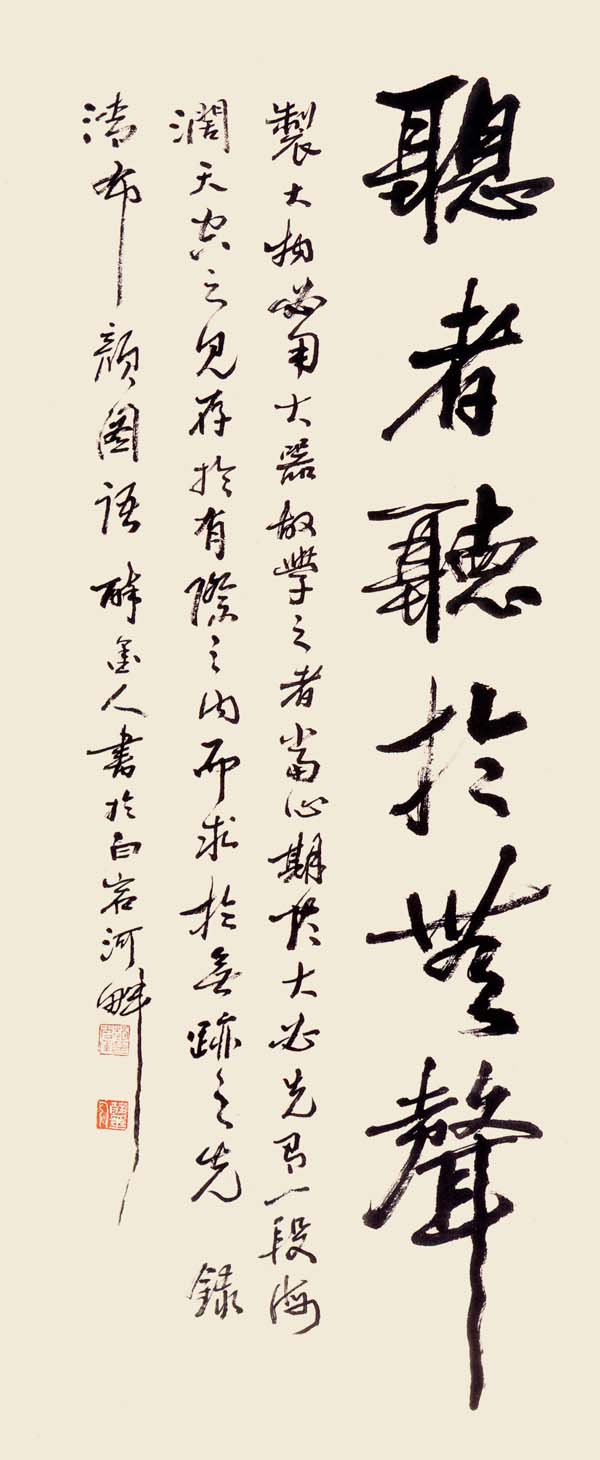 聰者聽於無聲
製大物必用大器故學之者當心期於大必先有一段海
濶天空之見存於有際之内而求於無跡之先 錄
清布顏圖語 醉墨人書於白岩河畔